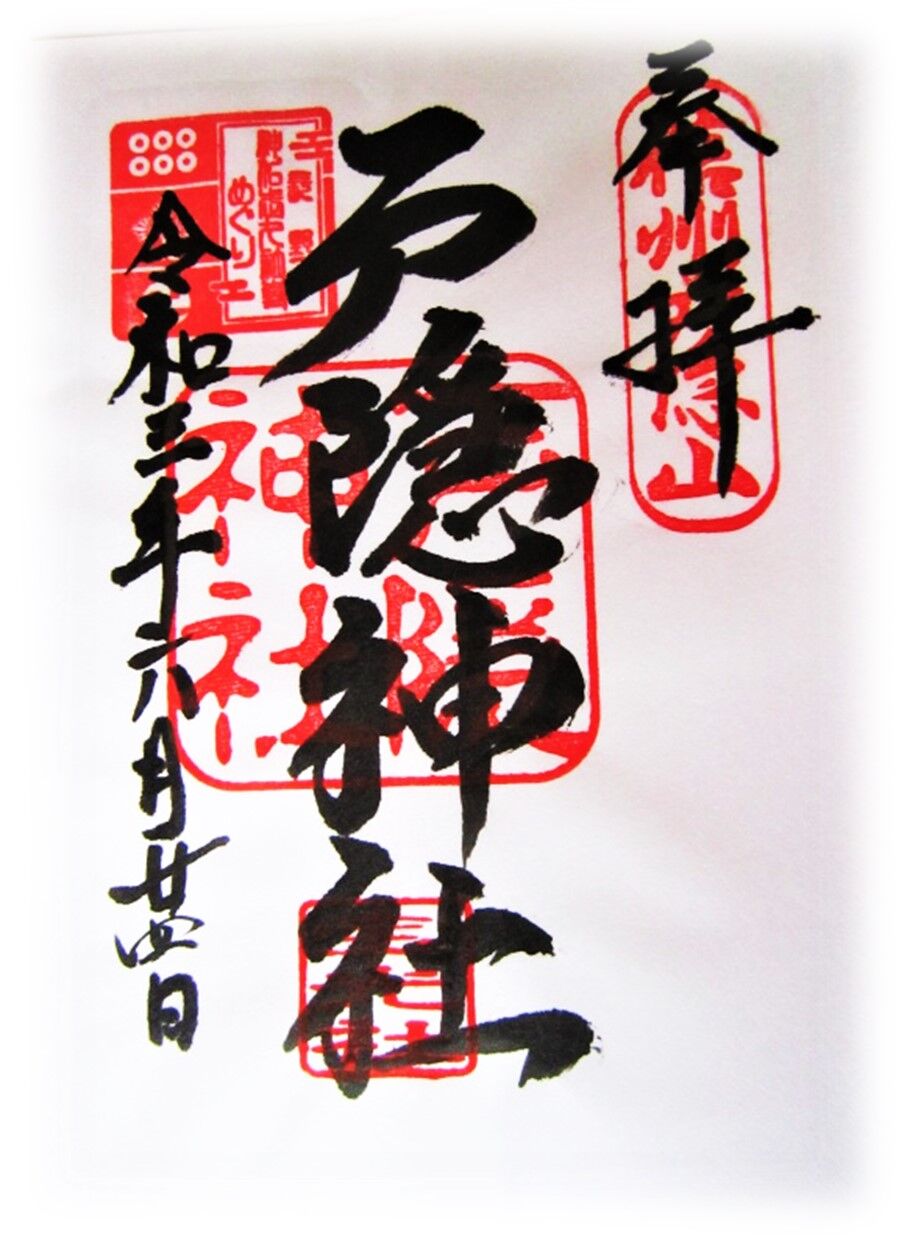 奉拝
信州戸隠山
戸隠神社
戸隠
神社
めぐり
令和三年六月廿四日